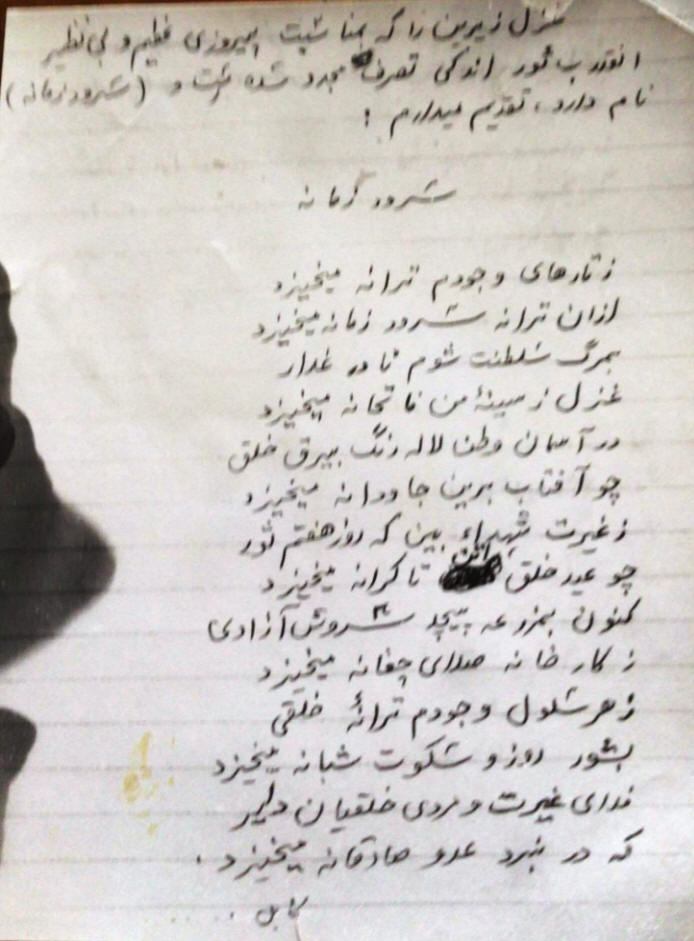 غزل زیرین را که بمناسبت پیروزی عظیم و بی نظیر
انقلاب ثور اندکی تصرف مجدد شده است و (سرود زمانه)
نام دارد، تقدیم میدارم :
سرود زمانه
ز تارهای وجودم ترانه میخیزد
ازان ترانه سرود زمانه میخیزد
بمرگ سلطنت شوم نادر غدار
غزل ز سینهٔ من فاتحانه میخیزد
در آسمان وطن لاله رنگ بیرق خلق
چو آفتاب برین جاودانه میخیزد
ز غیرت شهداء بین که روز هفتم ثور
چو عید خلق ازین تا کرانه میخیزد
کنون بمزرعه پیچد سروش آزادی
ز کارخانه صدای چغانه میخیزد
ز هر سلول وجودم ترانهٔ خلقی
بشور روز و سکوت شبانه میخیزد
فدای غیرت و مردی خلقیان دلیر
که در نبرد عدو صادقانه میخیزد.
کابل ...